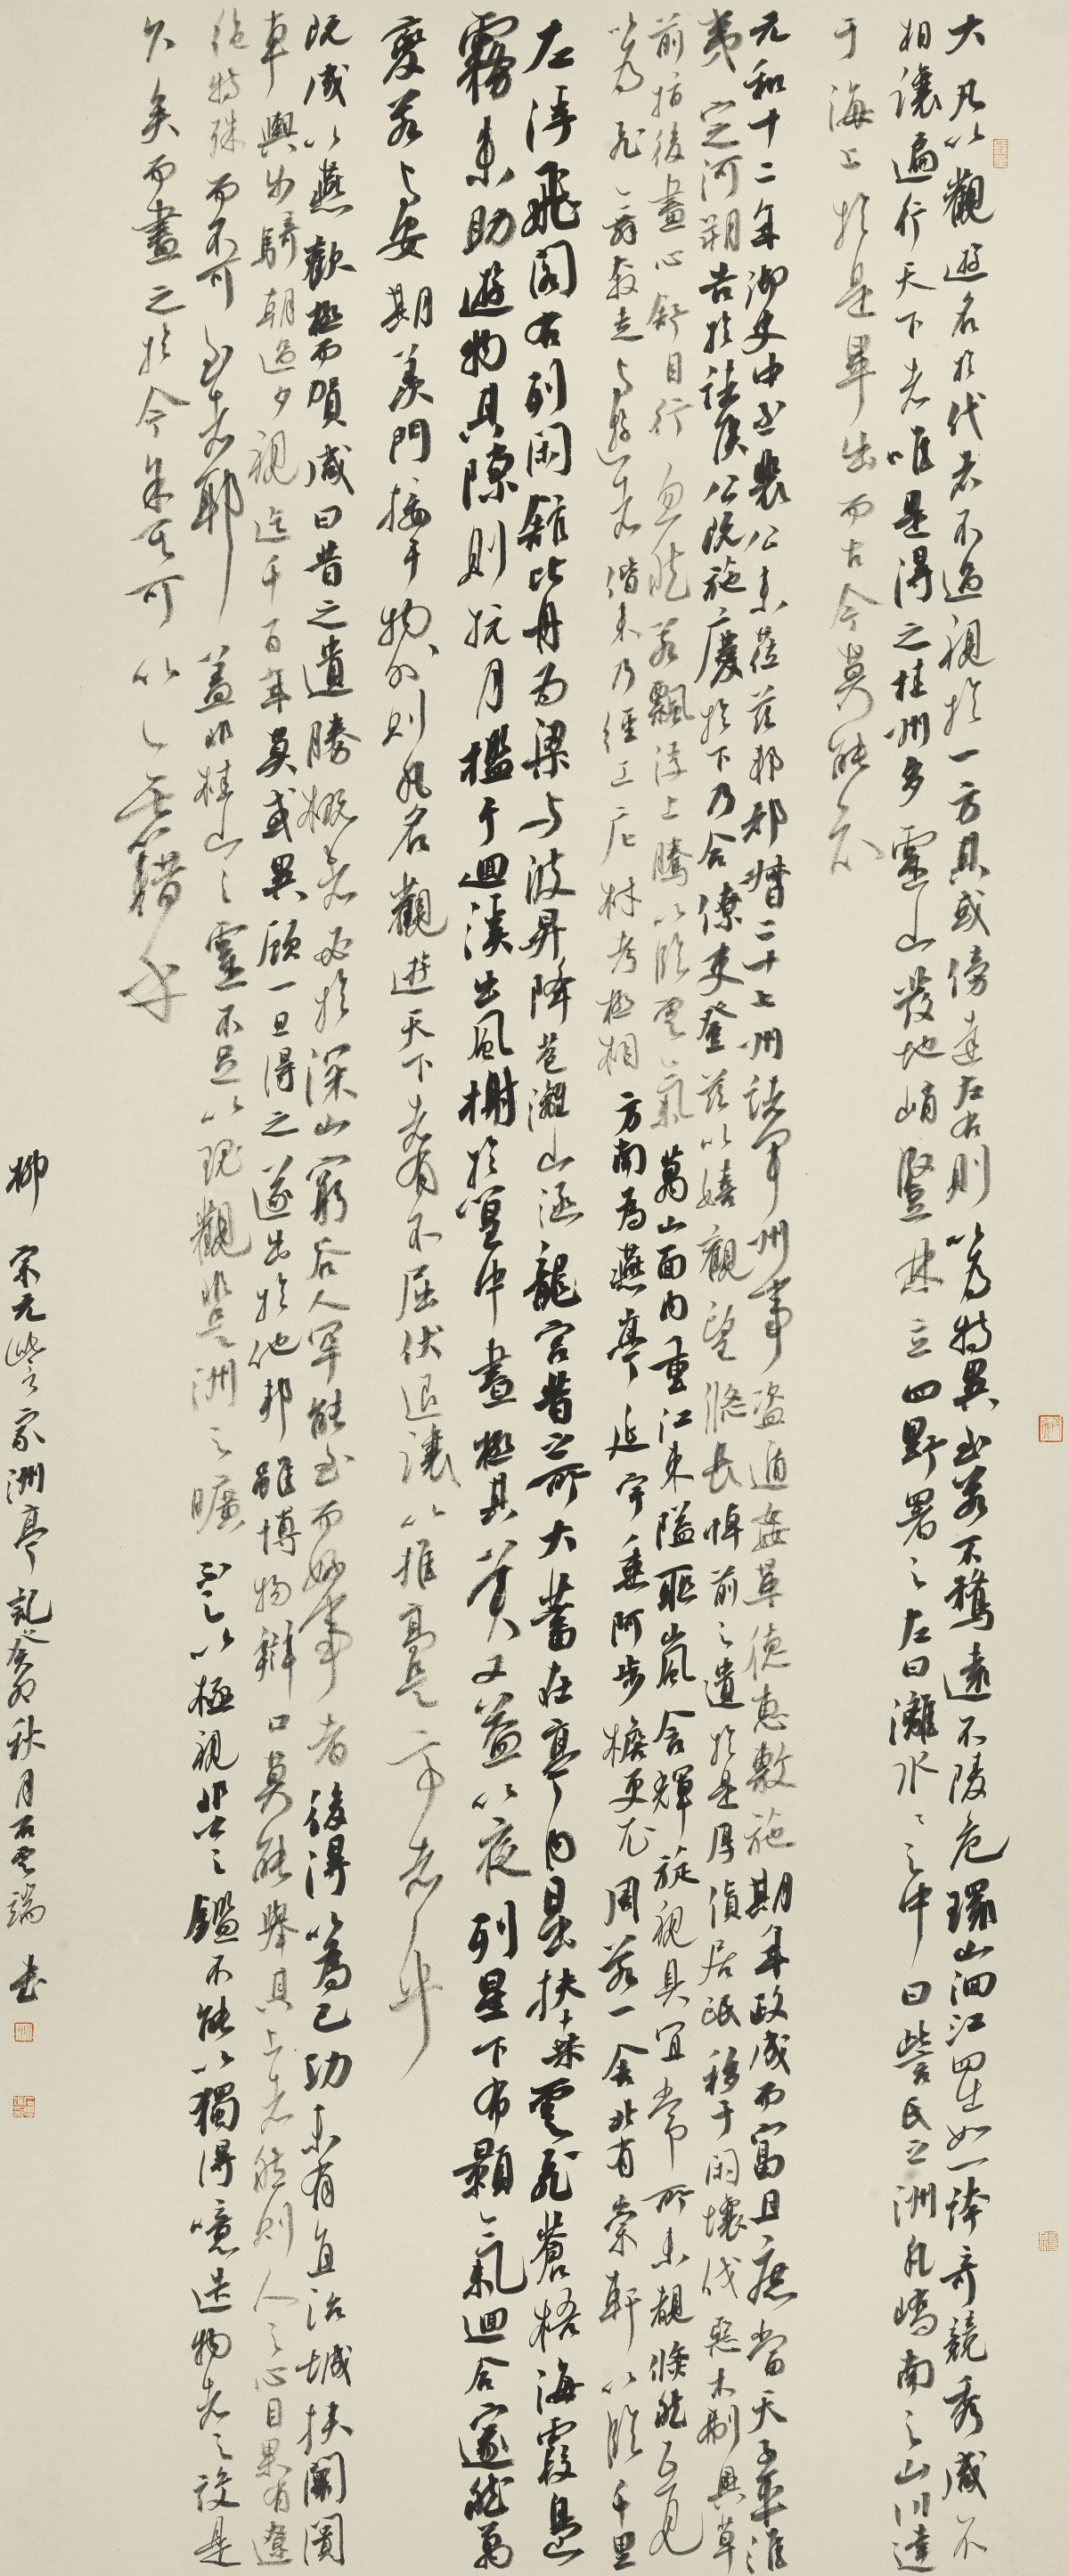 大凡以觀遊名於代者不過視於一方其或傍達左右則以為特異至若不鶩遠不陵危環山洄江四出如一誇奇競秀咸不
相讓遍行天下者唯是得之桂州多靈山發地峭豎林立四野署之左曰灕水水之中曰訾氏之洲凡嶠南之山川達
于海上於是畢出而古今莫能知
元和十二年御史中丞裴公來蒞茲邦都督二十七州諸軍州事盜遁姦革德惠敷施期年政成而富且庶當天子平淮
夷定河朔告於諸侯公既施慶於下乃合僚吏登茲以嬉觀望悠長悼前之遺於是厚償居氓移于閑壤伐惡木剃奧草
前指後畫心舒目行忽然若飄浮上騰以臨雲氣萬山面內重江束隘聯嵐含輝旋視具宜常所未覩倐然互見
以為飛舞奔走與遊者偕來乃經工庀材考極相方南為燕亭延宇垂阿步檐更衣周若一舍北有崇軒以臨千里
左浮飛閣右列閑館比舟為梁與波昇降苞灕山涵龍宮昔之所大蓄在亭內日出扶桑雲飛蒼梧海霞島
霧來助遊物其隙則抗月檻于迴溪出風榭於篁中晝極其美又益以夜列星下布顥氣迴合邃然萬
變若與安期羨門接于物外則凡名觀遊天下者有不屈伏退讓以推高是亭者乎
既成以燕歡極而賀咸曰昔之遺勝概者必於深山窮谷人罕能至而好事者後得以為己功未有直治城挾闤闠
車輿步騎朝過夕視訖千百年莫或異顧一旦得之遂出於他邦雖博物辯口莫能舉其上者然則人之心目果有遼
絕特殊而不可至者耶蓋非桂山之靈不足以瑰觀非是洲之曠不足以極視非公之鑑不能以獨得噫造物者之設是
久矣而盡之於今余其可以無藉乎
柳宗元訾家洲亭記癸卯秋月石雲端書